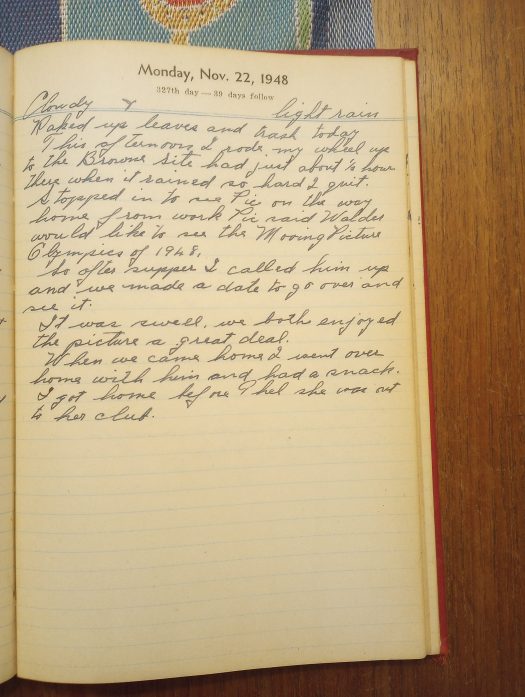 Monday, Nov. 22, 1948
327th day — 39 days follow
Cloudy & light rain
Raked up leaves and trash today
This afternoon I rode my wheel up
to the Browne site had just about ½ hour
there when it rained so hard I quit.
Stopped in to see Pic on the way
home from work Pic said Walder
would like to see the Moving Picture
Olympics of 1948.
So after supper I called him up
and we made a date to go over and
see it.
It was swell. we both enjoyed
the picture a great deal.
When we came home I went over
home with him and had a snack.
I got home before Phel she was out
to her club.